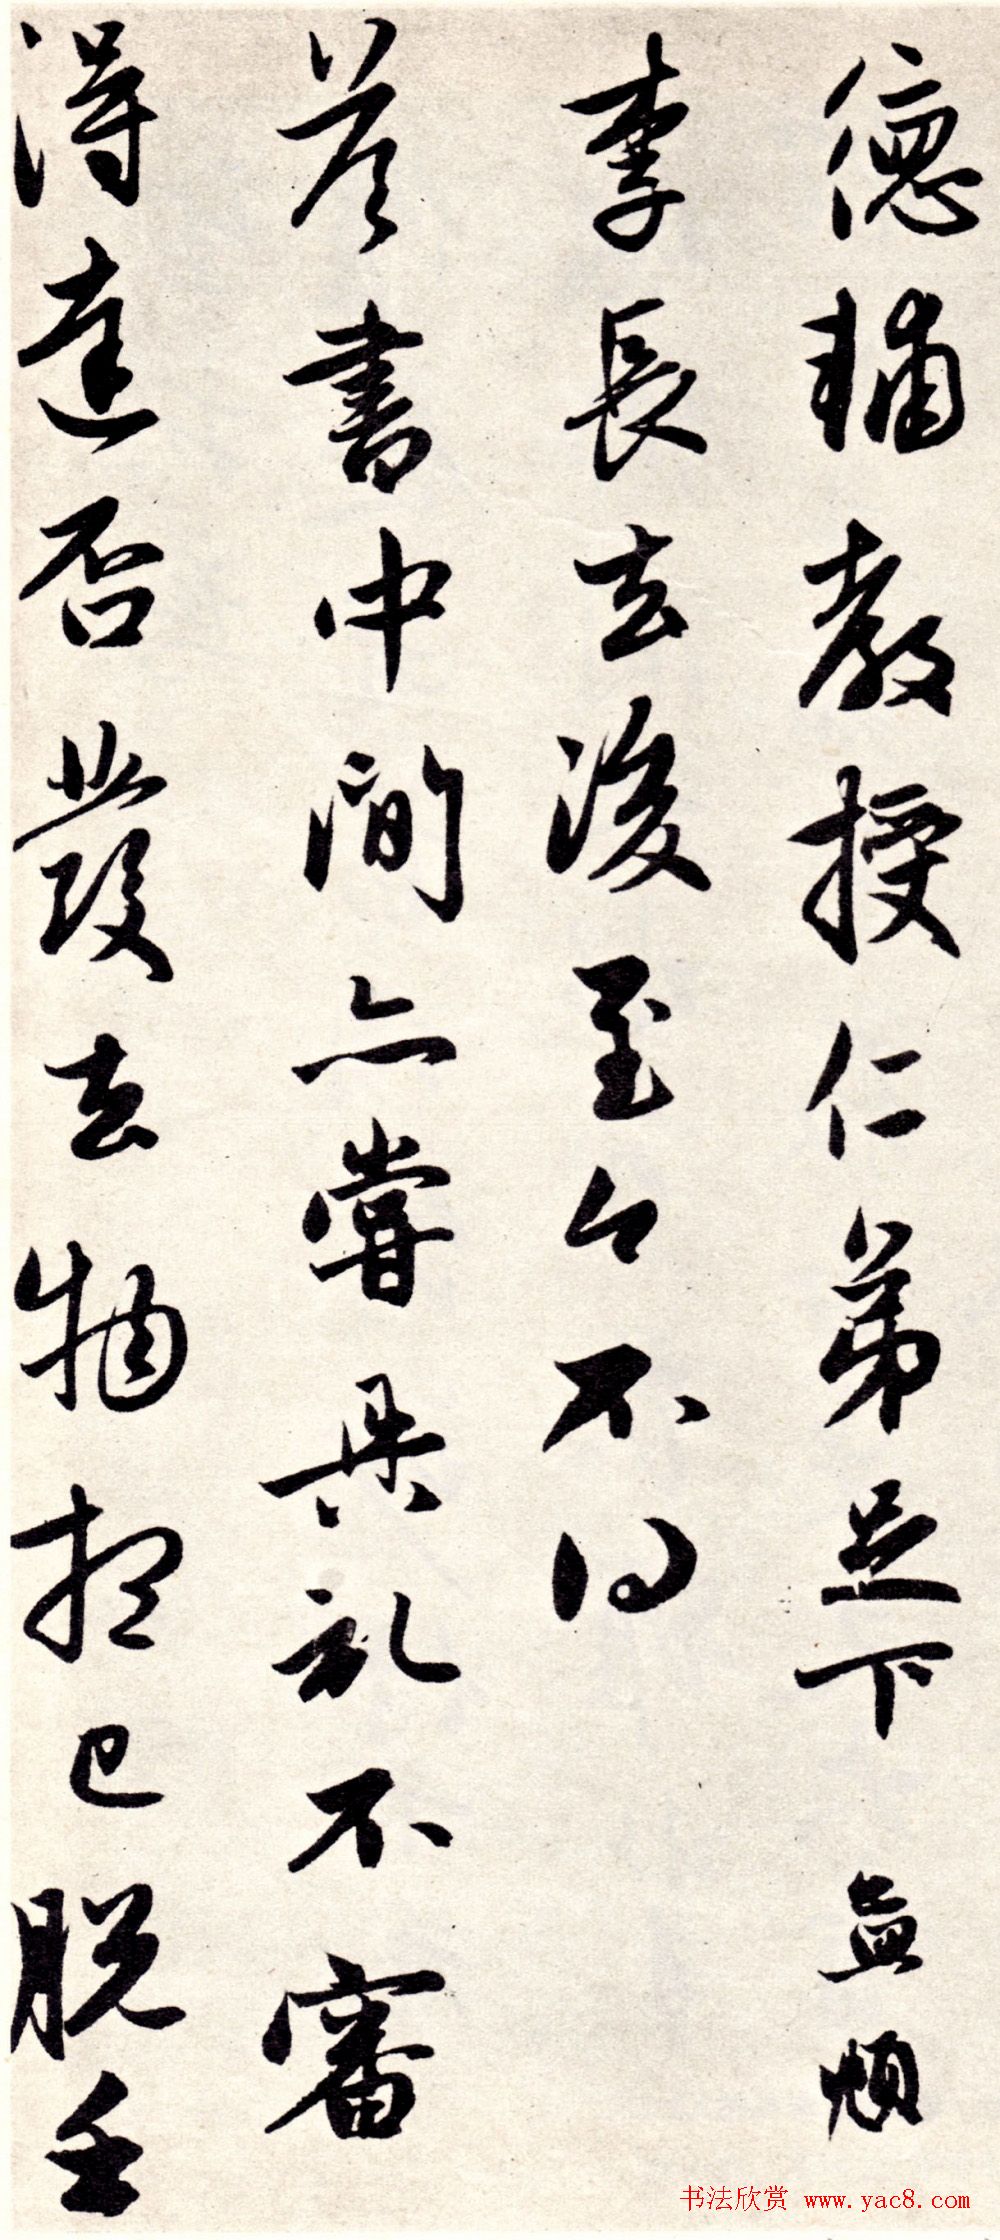 德輔教授仁弟足下 孟頫
李長去後至今不得
答書中間亦嘗具礼不審
得達否發去物想已脱手
书法欣赏 www.yac8.com